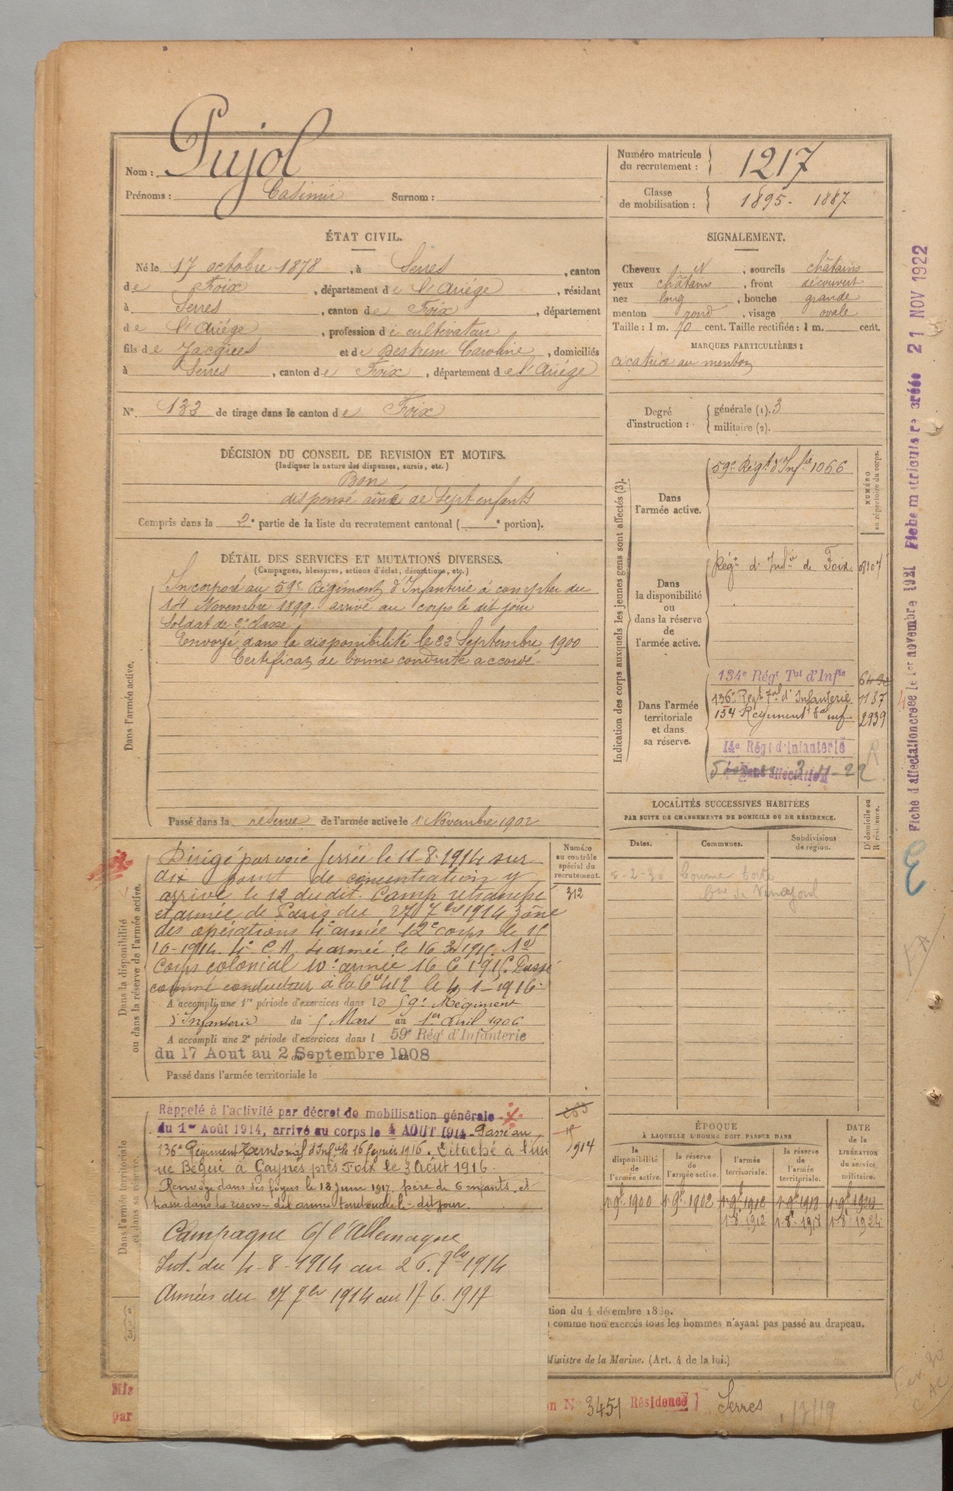 Nom : Pujol
Prénoms : Casimir Surnom :
Numéro matricule du recrutement : 1217
Classe de mobilisation : 1895 - 1887
ÉTAT CIVIL.
Né le 17 octobre 1878, à Serres, canton
de Foix, département de l'Ariège, résidant
à Serres, canton de Foix, département
de l'Ariége, profession de cultivateur
fils de Jacques et de Caroline, domiciliés
à Serres, canton de Foix, département de l'Ariége
N° 133 de tirage dans le canton de Foix
SIGNALEMENT.
Cheveux, sourcils châtains
yeux châtains, front découvert
nez long, bouche grande
menton rond, visage ovale
Taille : 1 m. 70 cent. Taille rectifiée : 1 m. cent.
MARQUES PARTICULIÈRES :
cicatrice au menton
Degré d'instruction : générale (1). 3
militaire (2).
DÉCISION DU CONSEIL DE REVISION ET MOTIFS.
(Indiquer la nature des dispenses, sursis, etc.)
Bon
dispensé ainé de sept enfants
Compris dans la 2e partie de la liste du recrutement cantonal ( e portion).
DÉTAIL DES SERVICES ET MUTATIONS DIVERSES.
(Campagnes, blessures, actions d'éclat, décorations, etc.)
Dans l'armée active.
Incorporé au 59e Régiment d'Infanterie à compter du
14 Novembre 1899 arrivé au corps le dit jour
Soldat de 2e classe
Envoyé dans la disponibilité le 22 Septembre 1900
Certificat de bonne conduite accordé.
Passé dans la réserve de l'armée active le 1 Novembre 1902
Dans la disponibilité ou dans la réserve de l'armée active.
Dirigé par voie ferrée le 11-8-1914 sur
point de concentration y
arrivé le 12 dudit. Camp retranché
et armée de Paris du 27 7bre 1914 zône
des opérations 4e armée 12e corps le 1er
10-1914. 4e C.A. 4 armée le 16 3 1915. 1er
Corps colonial 10e armée 16 6 1915. Passé
comme conducteur à la 6e
A accompli une 1re période d'exercices dans le 59e Régiment
d'Infanterie du 5 Mars au 1er Avril 1906
A accompli une 2e période d'exercices dans l 59e Régt d'Infanterie
du 17 Aout au 2 Septembre 1908
Passé dans l'armée territoriale le
Numéro au contrôle spécial du recrutement.
312
Dans l'armée territoriale et dans sa réserve.
Rappelé à l'activité par décret de mobilisation générale
du 1er Août 1914, arrivé au corps le 4 AOUT 1914. Passé au
136e Régiment Territorial d'Infie le 16 février 1916. Détaché à l'usi
ne Bègue à près Foix le 3 Août 1916.
Renvoyé dans ses foyers le 18 juin 1917, père de 6 enfants, et
passé dans la réserve de l'armée territoriale le dit jour.
1914
Campagne c/ l'Allemagne
Int. du 4-8-1914 au 26. 7bre 1914
Armées du 27 7bre 1914 au 17 6. 1917
Indication des corps auxquels les jeunes gens sont affectés (3).
NUMÉRO au répertoire du corps.
Dans l'armée active.
59e Régt d'Infie 1066
Dans la disponibilité ou dans la réserve de l'armée active.
Régt d'Infie de Foix
Dans l'armée territoriale et dans sa réserve.
134e Régt Tal d'Infie
136e Régt Tal d'Infanterie 1157
154 Régiment Tal inf 2939
14e Régt d'Infanterie
LOCALITÉS SUCCESSIVES HABITÉES
PAR SUITE DE CHANGEMENTS DE DOMICILE OU DE RÉSIDENCE.
Dates. Communes. Subdivisions de région. D. domicile ou R. résidence.
ÉPOQUE
À LAQUELLE L'HOMME DOIT PASSER DANS
DATE de la LIBÉRATION du service militaire.
la disponibilité de l'armée active. la réserve de l'armée active. l'armée territoriale. la réserve de l'armée territoriale.
1 9bre 1900 1 9bre 1902
tion du 4 décembre 1889.
comme non exercés tous les hommes n'ayant pas passé au drapeau.
Ministre de la Marine. (Art. 4 de la loi.)
on N° 3451 Résidence Serres
par
Fiche d'affectation créée le 1er novembre 1921
Fiche matricule créée 21 NOV 1922